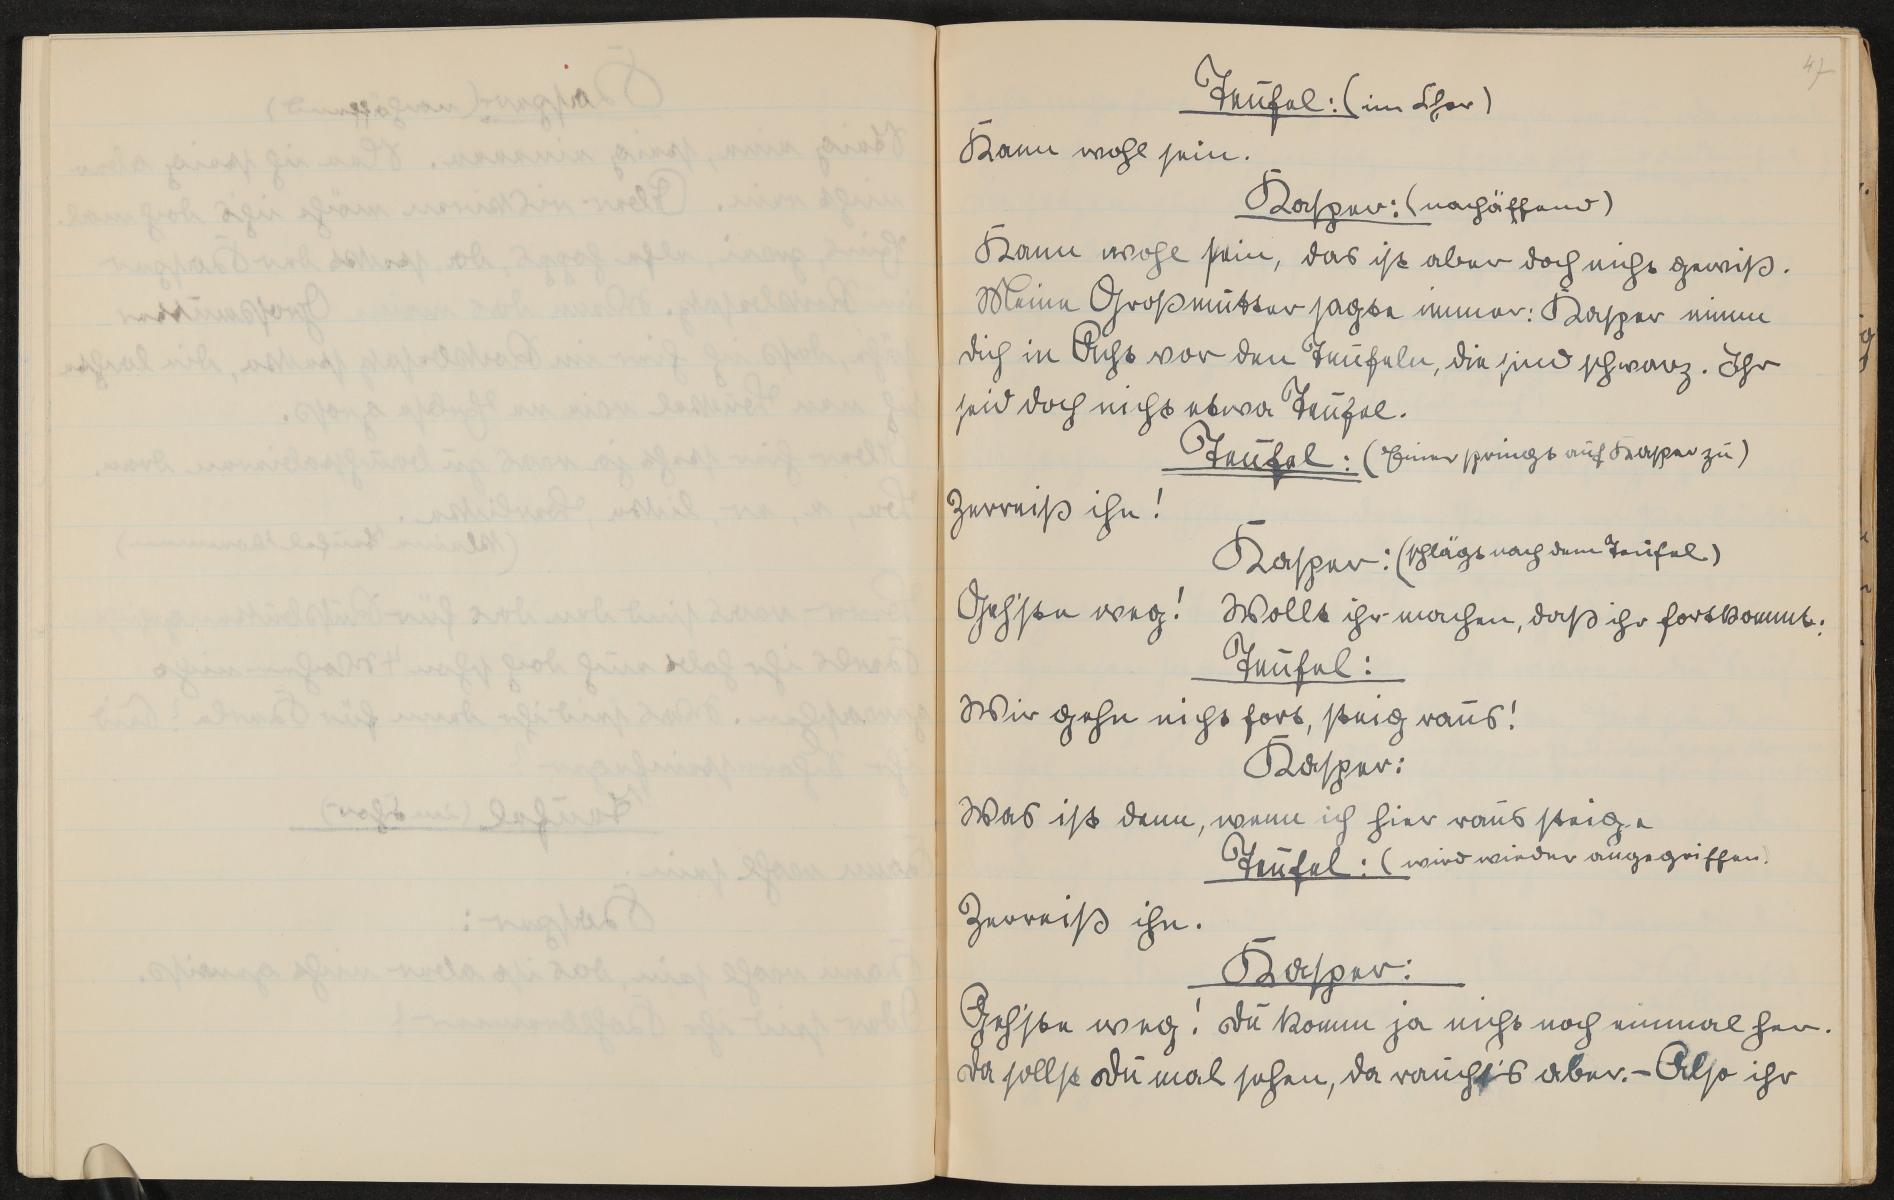 47
Teufel: (im Chor)
Kann wohl sein.
Kasper: (nachäffend)
Kann wohl sein, das ist aber doch nicht gewiß.
Meine Großmutter sagte immer: Kasper nimm
dich in Acht vor den Teufeln, die sind schwarz. Ihr
seid doch nicht etwa Teufel.
Teufel: (Einer springt auf Kasper zu)
Zerreiß ihn!
Kasper: (schlägt nach dem Teufel)
Geh'ste weg! Wollt ihr machen, daß ihr fortkommt.
Teufel:
Wir gehn nicht fort, steig raus!
Kasper:
Was ist denn, wenn ich hier raus steige
Teufel: (wird wieder angegriffen)
Zerreiß ihn.
Kasper:
Geh'ste weg! Du komm ja nicht noch einmal her.
Da sollst Du mal sehen, da raucht's aber. – Also ihr